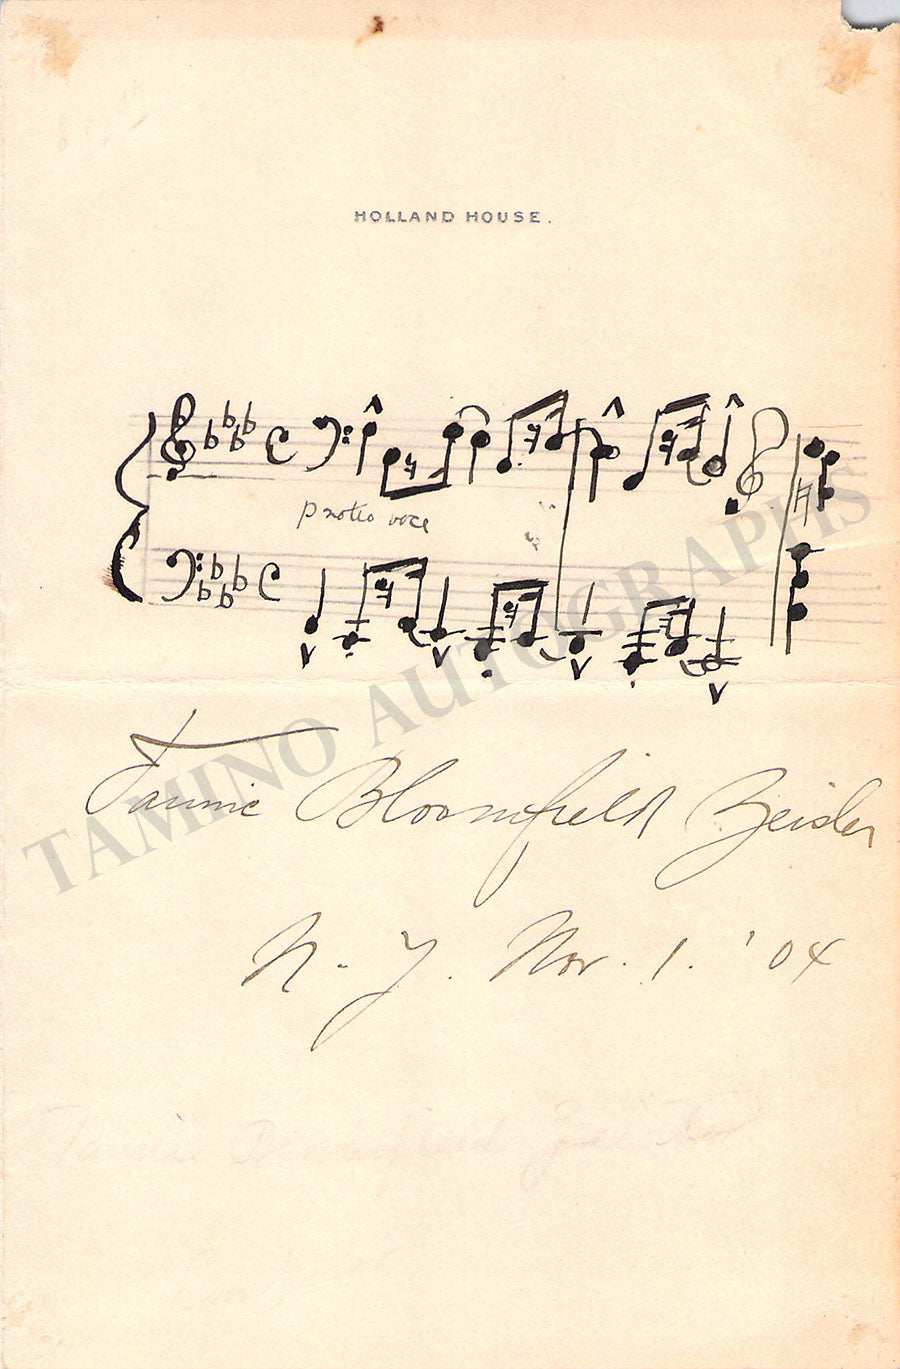 HOLLAND HOUSE.
p sotto voce
TAMINO AUTOGRAPHS
Fannie Bloomfield Zeisler
N. Y. Nov. 1. '04